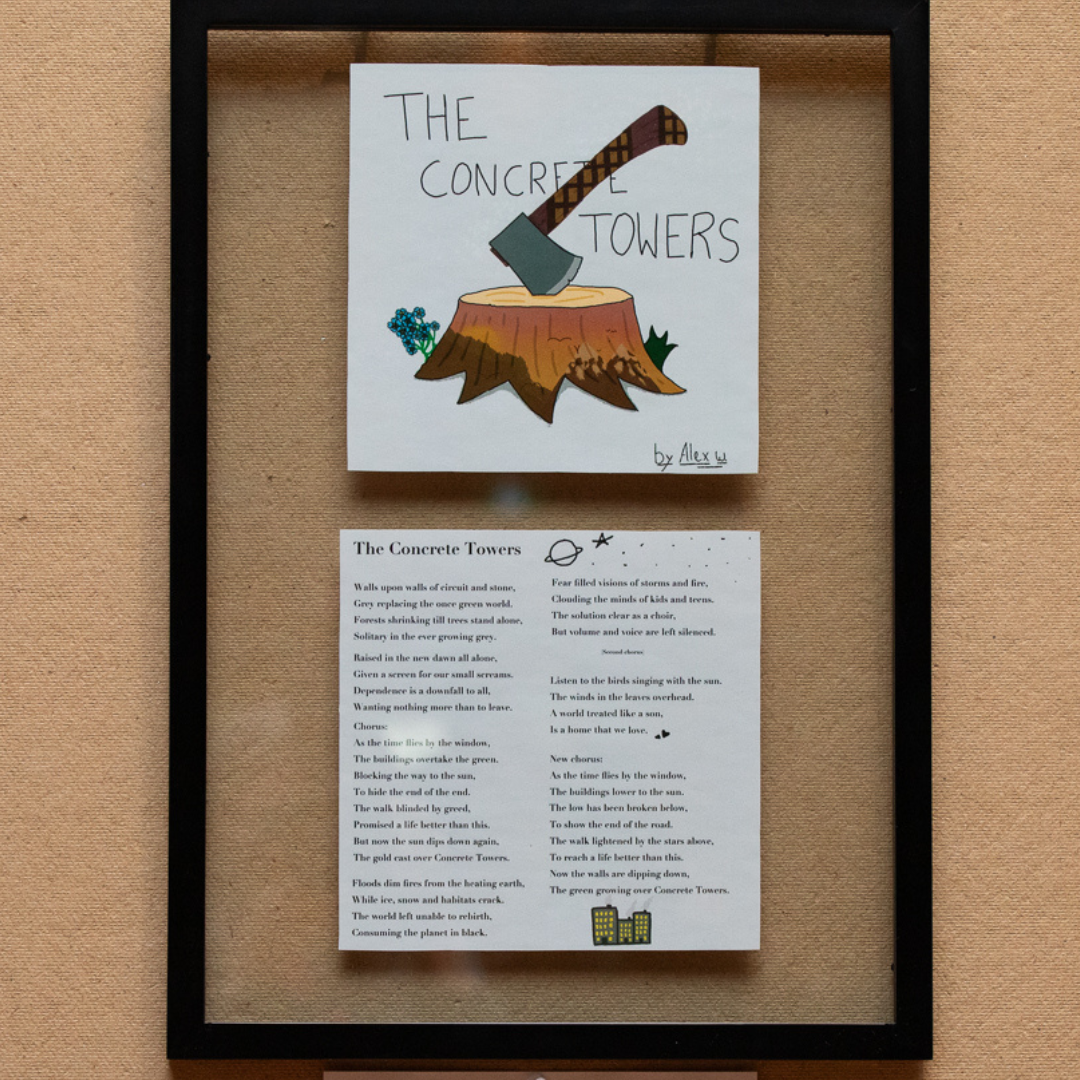 THE
CONCRETE
TOWERS
by Alex W
The Concrete Towers
Walls upon walls of circuit and stone,
Grey replacing the once green world.
Forests shrinking till trees stand alone,
Solitary in the ever growing grey.
Raised in the new dawn all alone,
Given a screen for our small screams.
Dependence is a downfall to all,
Wanting nothing more than to leave.
Chorus:
As the time flies by the window,
The buildings overtake the green.
Blocking the way to the sun,
To hide the end of the end.
The walk blinded by greed,
Promised a life better than this.
But now the sun dips down again,
The gold cast over Concrete Towers.
Floods dim fires from the heating earth,
While ice, snow and habitats crack.
The world left unable to rebirth,
Consuming the planet in black.
Fear filled visions of storms and fire,
Clouding the minds of kids and teens.
The solution clear as a choir,
But volume and voice are left silenced.
Second chorus:
Listen to the birds singing with the sun.
The winds in the leaves overhead.
A world treated like a son,
Is a home that we love.
New chorus:
As the time flies by the window,
The buildings lower to the sun.
The low has been broken below,
To show the end of the road.
The walk lightened by the stars above,
To reach a life better than this.
Now the walls are dipping down,
The green growing over Concrete Towers.